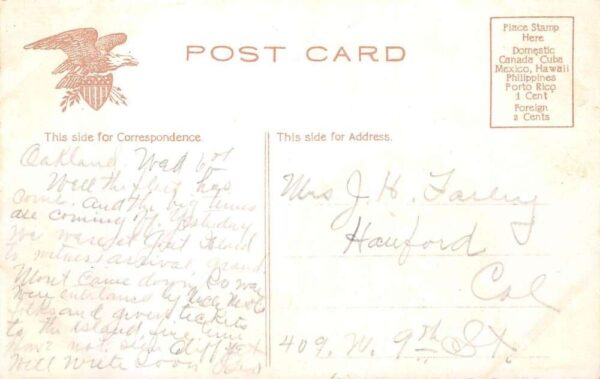 POST CARD
Place Stamp
Here
Domestic
Canada Cuba
Mexico, Hawaii
Philippines
Porto Rico
1 Cent
Foreign
2 Cents
This side for Correspondence.
This side for Address.
Oakland Wed
Well the fleet has
come. and the big times
are coming off. Yesterday
we were at Goat Island
to witness arrival, grand.
Mont came down, so we
were entertained by
folks and given tickets
to the island, fine time
have not seen Cliff yet
Will write soon
Mrs J. H. Farley
Hanford
Cal
409. W. 9th St.